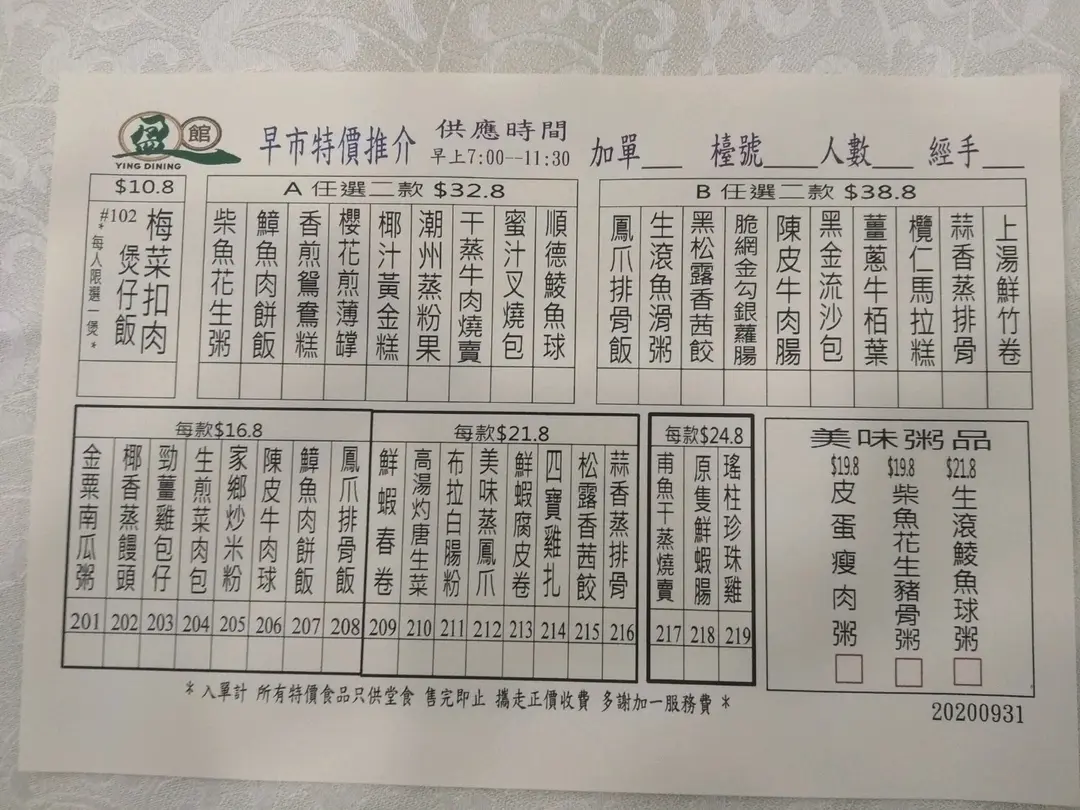 盈館
YING DINING
早市特價推介
供應時間
早上7:00--11:30
加單__ 檯號__ 人數__ 經手__
$10.8
#102
梅菜扣肉
煲仔飯
*每人限選一煲*
A 任選二款 $32.8
柴魚花生粥
鱆魚肉餅飯
香煎鴛鴦糕
櫻花煎薄罉
椰汁黃金糕
潮州蒸粉果
干蒸牛肉燒賣
蜜汁叉燒包
順德鯪魚球
B 任選二款 $38.8
鳳爪排骨飯
生滾魚滑粥
黑松露香茜餃
脆網金勾銀蘿腸
陳皮牛肉腸
黑金流沙包
薑蔥牛栢葉
欖仁馬拉糕
蒜香蒸排骨
上湯鮮竹卷
每款$16.8
金粟南瓜粥 201
椰香蒸饅頭 202
勁薑雞包仔 203
生煎菜肉包 204
家鄉炒米粉 205
陳皮牛肉球 206
鱆魚肉餅飯 207
鳳爪排骨飯 208
每款$21.8
鮮蝦春卷 209
高湯灼唐生菜 210
布拉白腸粉 211
美味蒸鳳爪 212
鮮蝦腐皮卷 213
四寶雞扎 214
松露香茜餃 215
蒜香蒸排骨 216
每款$24.8
甫魚干蒸燒賣 217
原隻鮮蝦腸 218
瑤柱珍珠雞 219
美味粥品
$19.8 皮蛋瘦肉粥
$19.8 柴魚花生豬骨粥
$21.8 生滾鯪魚球粥
* 入單計 所有特價食品只供堂食 售完即止 攜走正價收費 多謝加一服務費 *
20200931